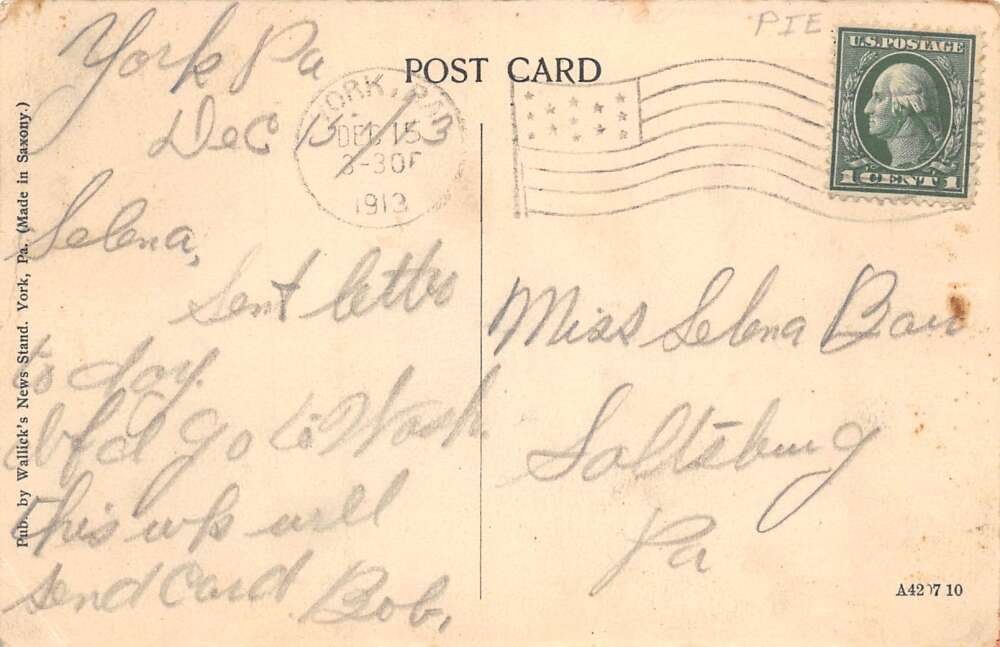 PIE
POST CARD
U.S. POSTAGE
1 CENT 1
YORK, PA.
DEC 15
3-30P
1913
York Pa
Dec 15/13
Selena,
Sent letter
to day.
If I go to Wash.
this wk will
send Card Bob.
Miss Selena
Saltsburg
Pa
Pub. by Wallick's News Stand. York, Pa. (Made in Saxony.)